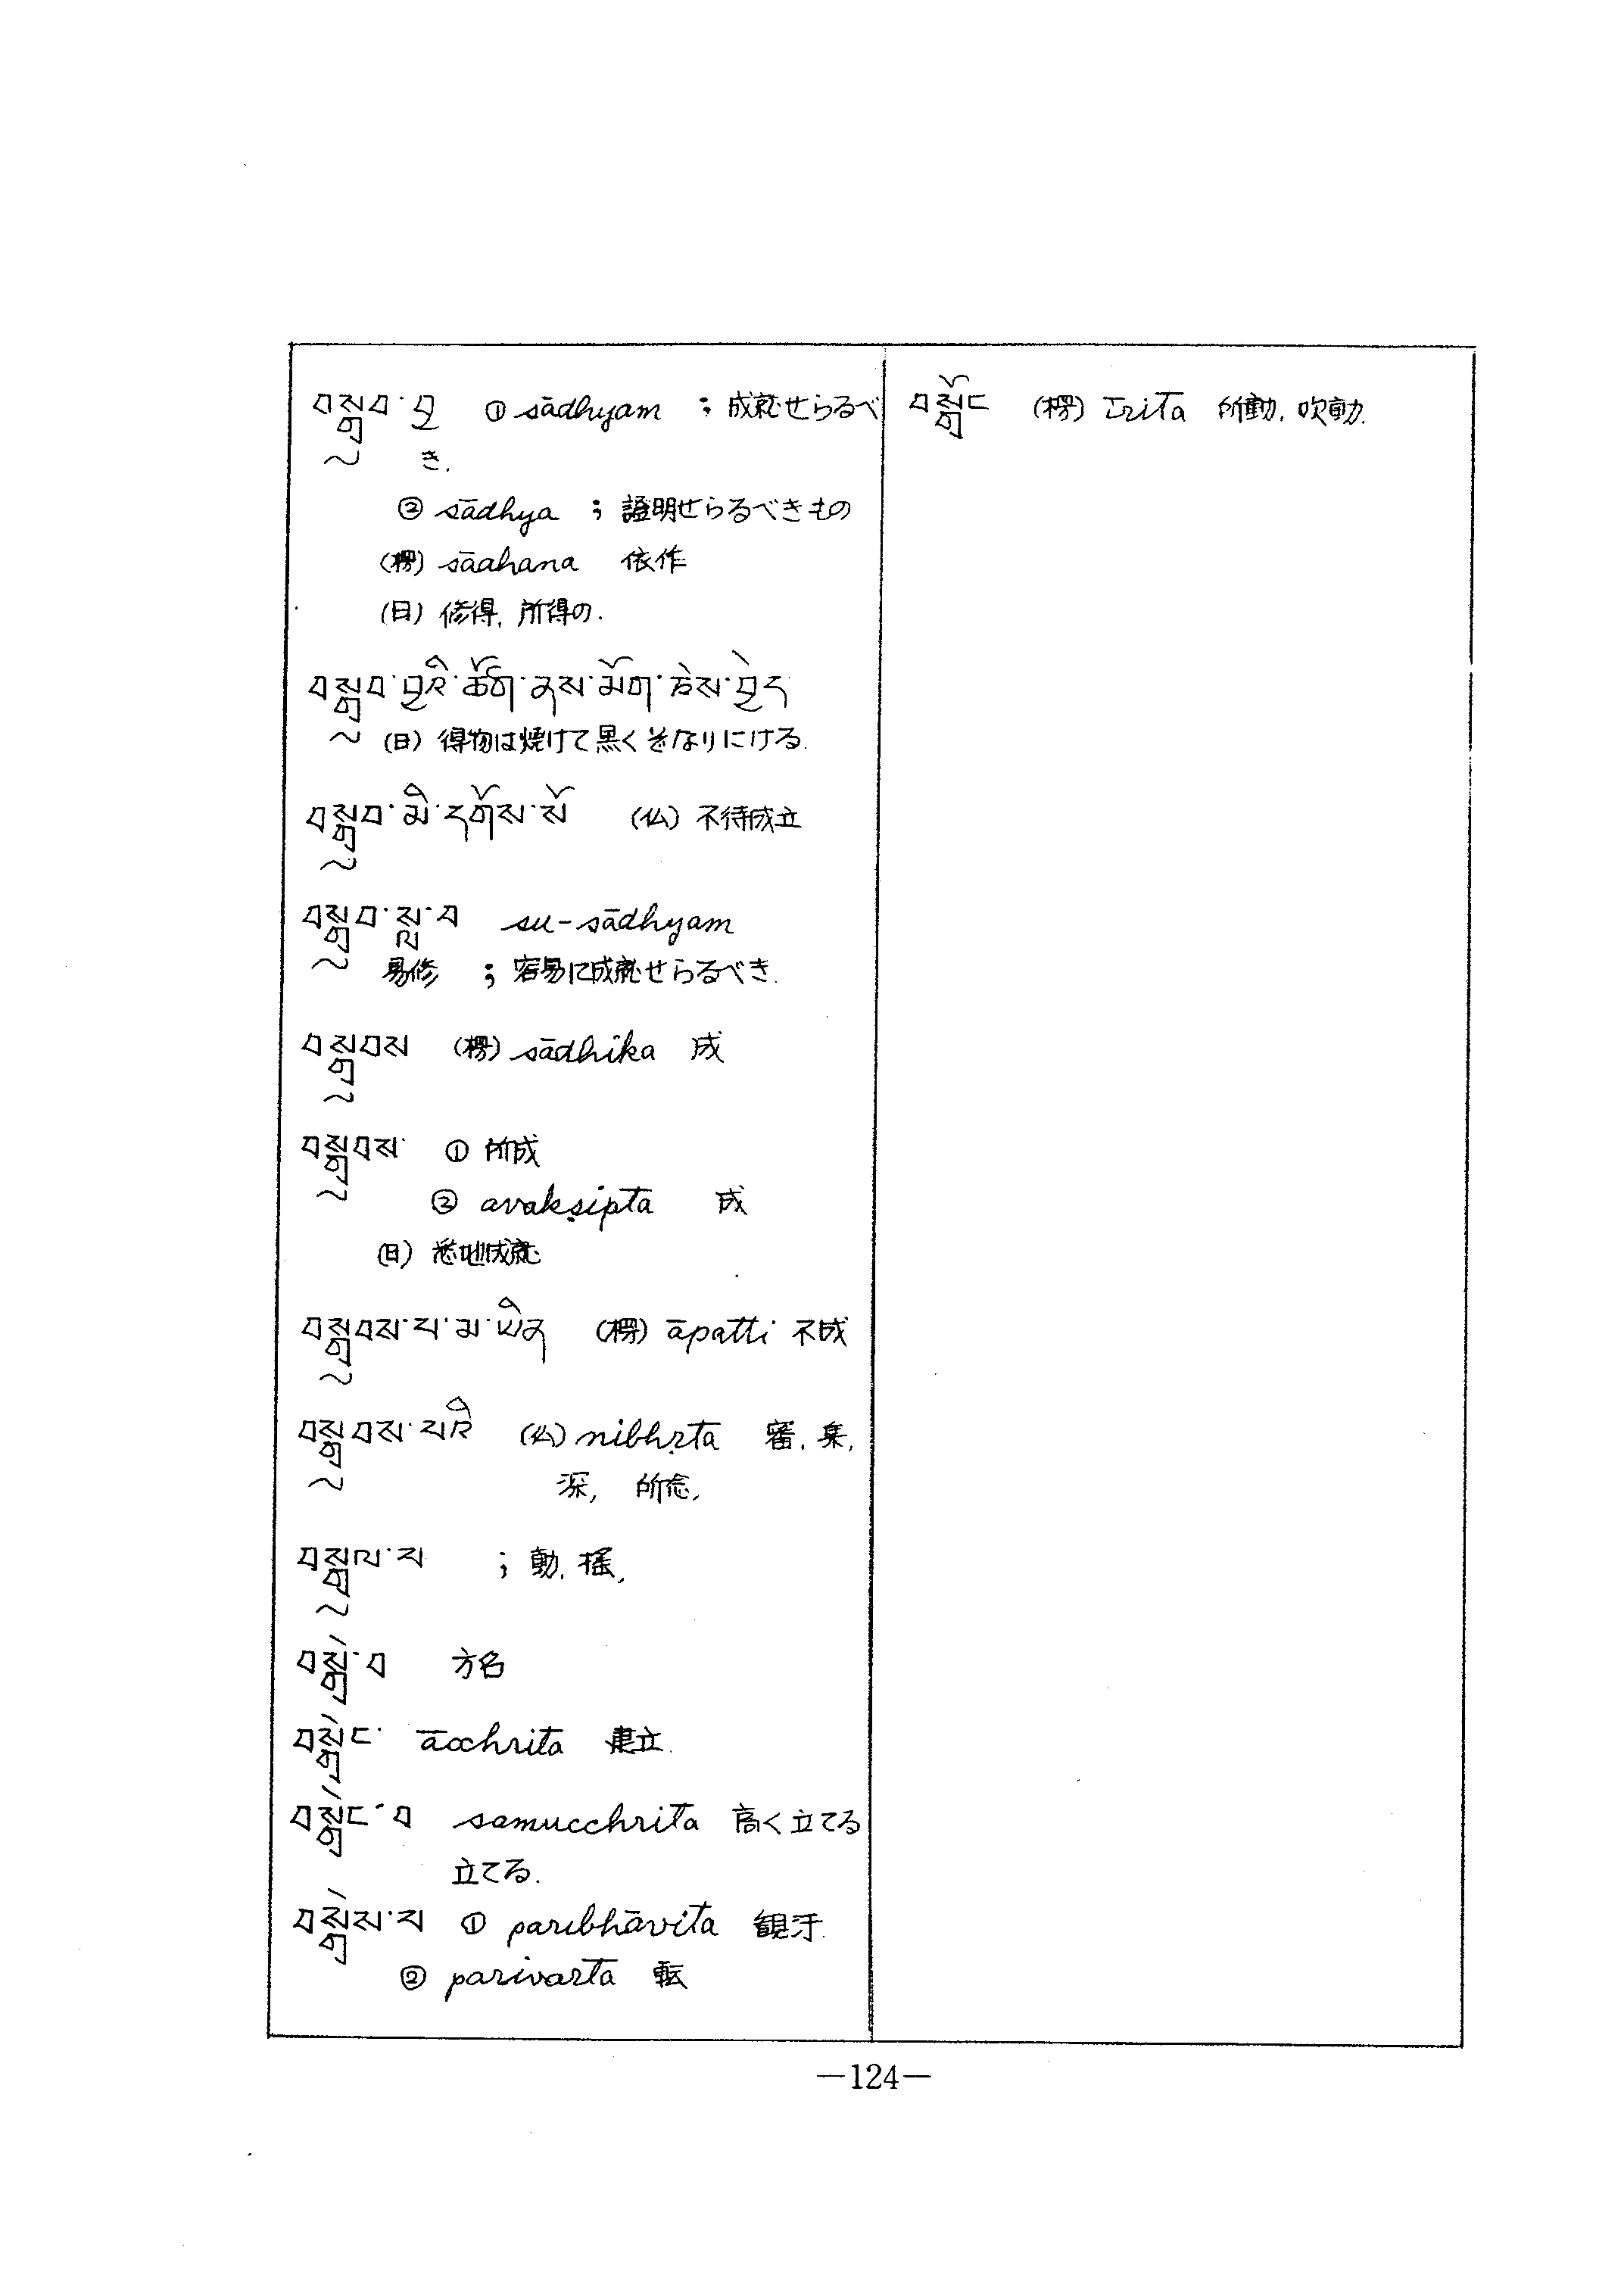 བསྒྲུབ་བྱ ① sādhyam ; 成就せらるべ
き.
② sādhya ; 證明せらるべきもの
(楞) sāahana 依作
(日) 修得, 所得の.
བསྒྲུབ་བྱའི་ཚོག་ནས་མོག་ཅེས་བྱེད
(日) 得物は焼けて黒くぞなりにける.
བསྒྲུབ་མི་དགོས་སོ (仏) 不待成立
བསྒྲུབ་སླ་བ su-sādhyam
易修 ; 容易に成就せらるべき.
བསྒྲུབས (楞) sādhika 成
བསྒྲུབས་ ① 所成
② avakṣipta 成
(日) 悉地成就
བསྒྲུབས་པ་མ་ཡིན (楞) āpatti 不成
བསྒྲུབས་པའི (仏) nibhṛta 審, 集,
深, 所念,
བསྒུལ་པ ; 動, 揺,
བསྒྲེ་བ 方名
བསྒྲེང་ ācchrita 建立.
བསྒྲེང་བ samucchrita 高く立てる
立てる.
བསྒོམས་པ ① paribhāvita
② parivarta 転
བསྒྲོད (楞) īrita 所動, 吹動.
—124—